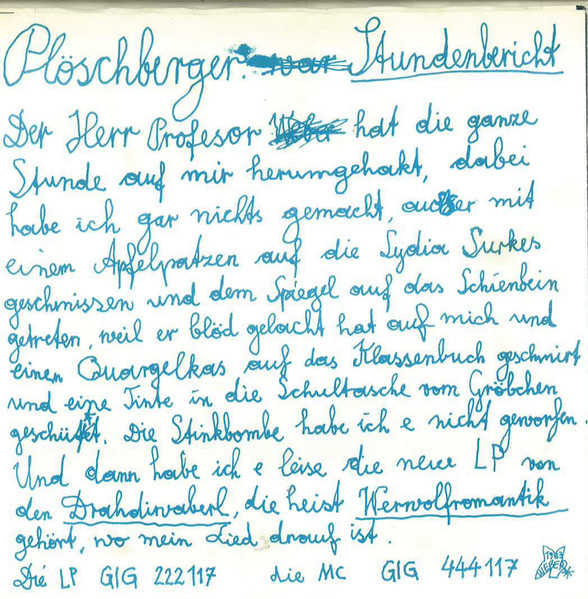 Plöschberger. war Stundenbericht
Der Herr Profesor Weber hat die ganze
Stunde auf mir herumgehakt, dabei
habe ich gar nichts gemacht, außer mit
einem Apfelpatzen auf die Lydia Surkes
geschmissen und dem Spiegel auf das Schienbein
getreten, weil er blöd gelacht hat auf mich und
einen Quargelkas auf das Klassenbuch geschmirt
und eine Tinte in die Schultasche vom Gröbchen
geschüttet. Die Stinkbombe habe ich e nicht geworfen.
Und dann habe ich e leise die neue LP von
den Drahdiwaberl, die heist Werwolfromantik
gehört, wo mein Lied drauf ist.
Die LP GIG 222117 die MC GIG 444117 1983 WEBER